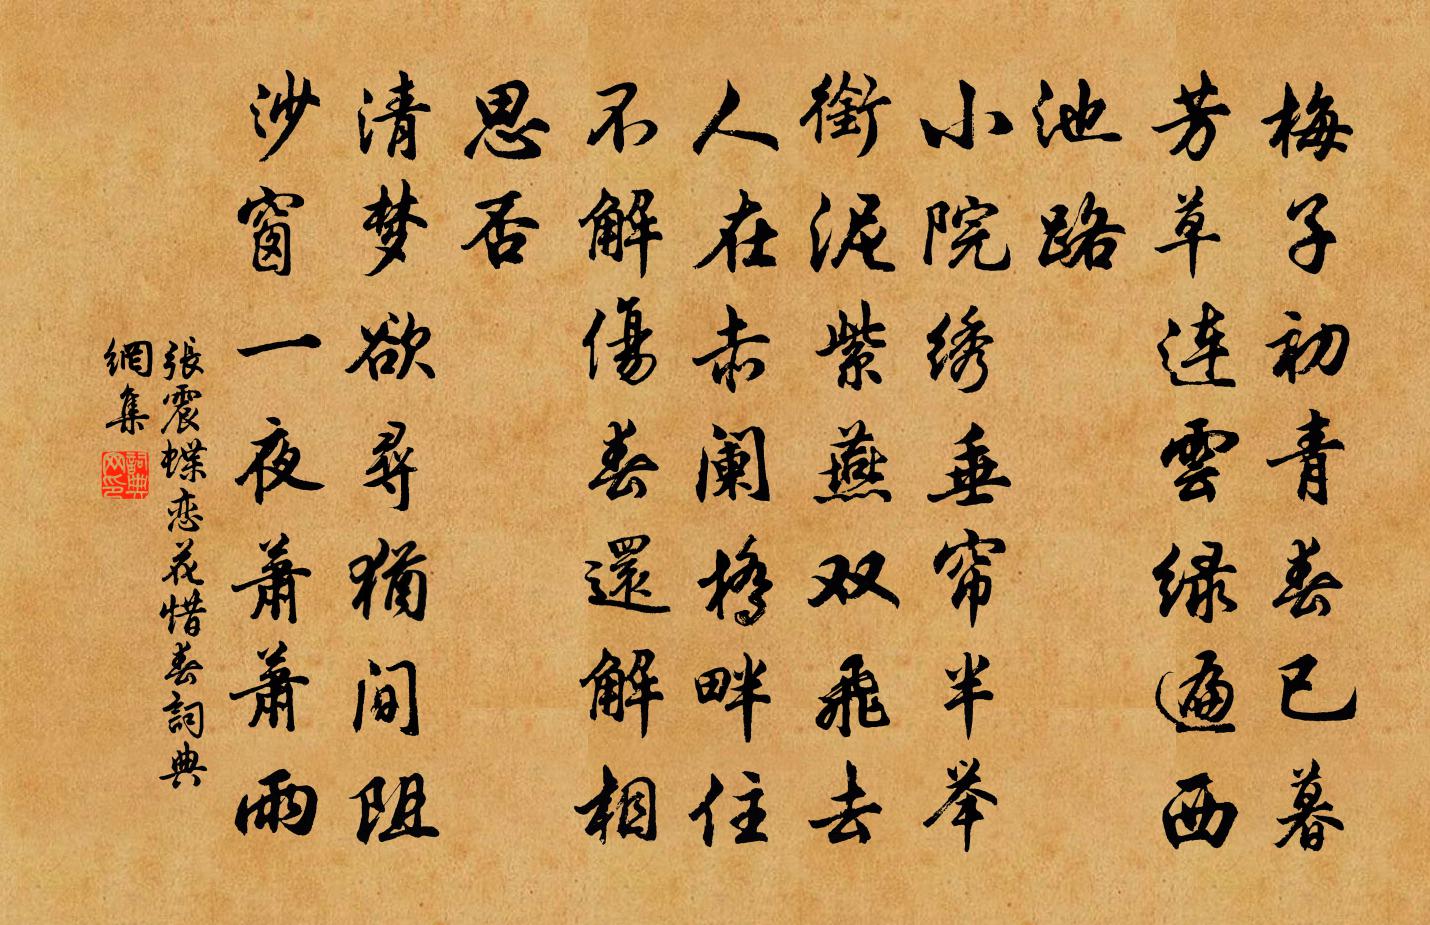 梅子初青春已暮
芳草连雲绿遍西
池路
小院绣垂帘半举
衔泥紫燕双飛去
人在赤阑橋畔住
不解傷春還解相
思否
清梦欲尋猶间阻
沙窗一夜萧萧雨
張震蝶恋花惜春詞典
網集
詞典网印